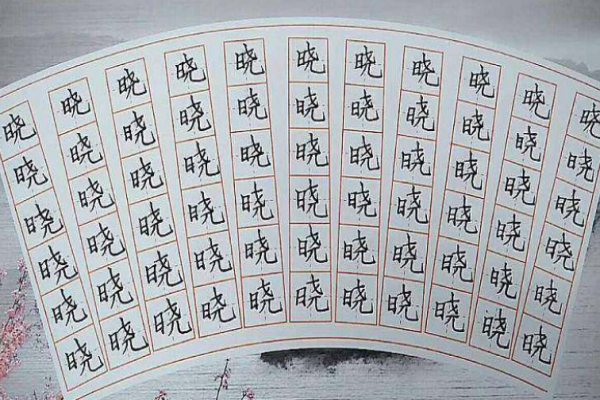 晓晓晓晓晓晓晓晓晓晓晓
晓晓晓晓晓晓晓晓晓晓晓
晓晓晓晓晓晓晓晓晓晓晓
晓晓晓晓晓晓晓晓晓晓晓
晓晓晓晓晓晓晓晓晓晓晓
晓晓晓晓晓晓晓晓晓晓晓